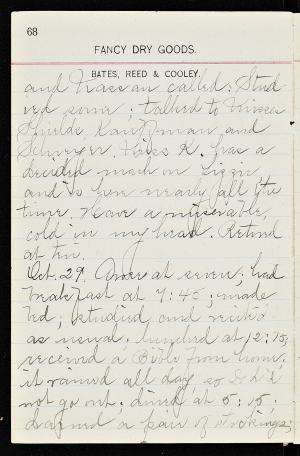 68
FANCY DRY GOODS.
BATES, REED & COOLEY.
and Nassau called. Stud-
ied some; talked to Misses
Kauffman and
Miss K. has a
decided mash on
and is here nearly all the
time. Have a miserable
cold in my head. Retired
at ten.
Oct. 29. Arose at seven; had
breakfast at 7:45; made
bed; studied and recited
as usual; lunched at 12:15;
received a Bible from home;
it rained all day so I did
not go out; dined at 5:15;
darned a pair of stockings;